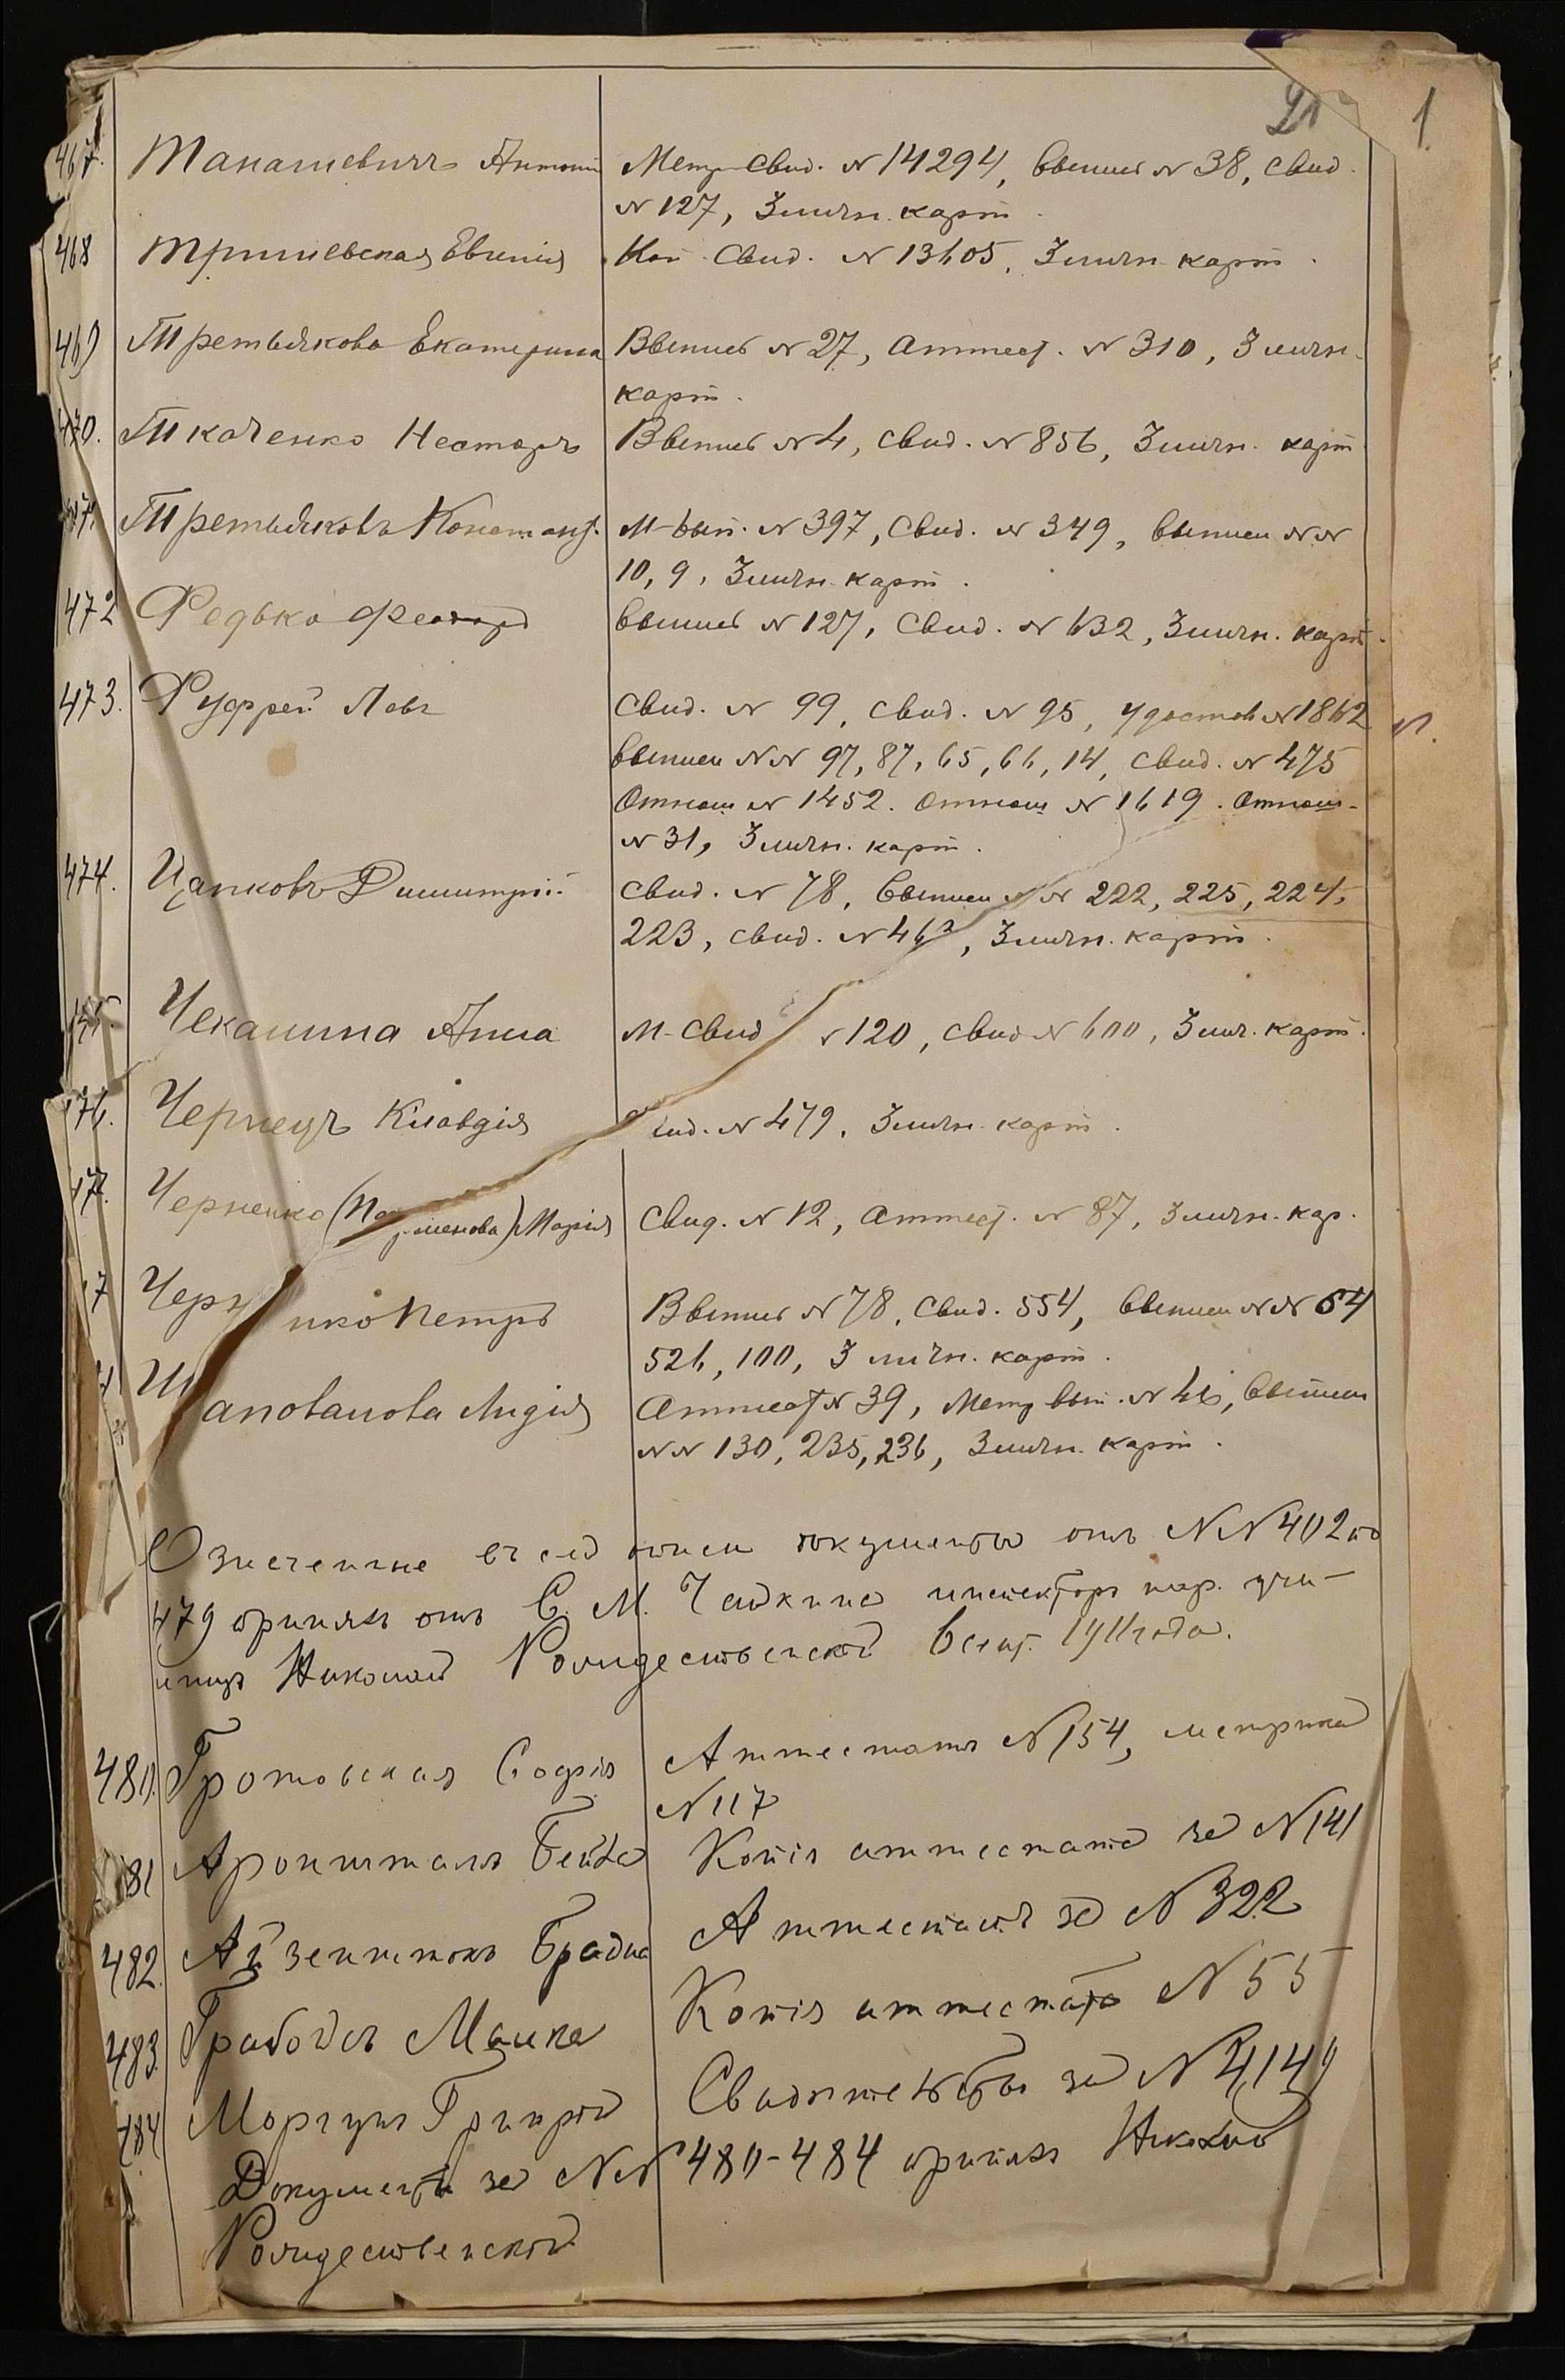 1.
467. Танашевичъ Антоній Метр. свид. № 14294, выпись № 38, свид.
№ 127, 3 личн. карт.
468 Тришевская Евгенія Коп. свид. № 13605, 3 личн. карт.
469 Третьякова Екатерина Выпись № 27, аттест. № 310, 3 личн.
карт.
470. Ткаченко Несторъ Выпись № 4, свид. № 856, 3 личн. карт.
471. Третьяковъ Констант. М-вып. № 397, свид. № 349, выписи №№
10, 9, 3 личн. карт.
472 Редько Феодоръ выпись № 127, свид. № 632, 3 личн. карт.
473. Руффей Левъ Свид. № 99, свид. № 95, удостов № 1862
выписи №№ 97, 87, 65, 66, 14, свид. № 475
Отнош № 1452. Отнош № 1619. Отнош.
№ 31, 3 личн. карт.
474. Цапковъ Димитрій Свид. № 78, выписи №№ 222, 225, 224,
223, свид. № 462, 3 личн. карт.
475. Чекалина Анна М-свид № 120, свид № 600, 3 лич. карт.
476. Чернецъ Клавдія свид. № 479, 3 личн. карт.
477. Черненко (Парменова) Марія Свид. № 12, аттест. № 87, 3 личн. кар.
47 Чер нко Петръ Выпись № 78, свид. 554, выписи №№ 54
526, 100, 3 личн. карт.
Шаповалова Лидія Аттест № 39, Метр вып. № 46, выписи
№№ 130, 235, 236, 3 личн. карт.
Означенные въ сей описи документы отъ №№ 402 по
479 принялъ отъ С. М. Чадкина инспекторъ нар. учи-
лищъ Николай Рождественскій 6 сент. 1911 года.
480. Гротовская Софія Аттестатъ № 154, метрика
№ 117
481 Ароншталь Бейла Копія аттестата за № 141
482. Айзенштокъ Брайна Аттестатъ за № 322
483. Грабойсъ Малка Копія аттестата № 55
484 Моргунъ Григорій Свидѣтельство за № 4149
Документы за №№ 480-484 принялъ Николай
Рождественскій